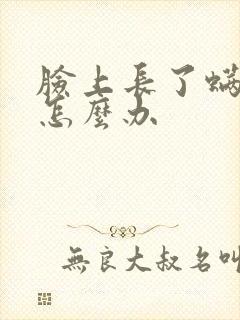 臉上長了螨
怎麼办
無良大叔名叫